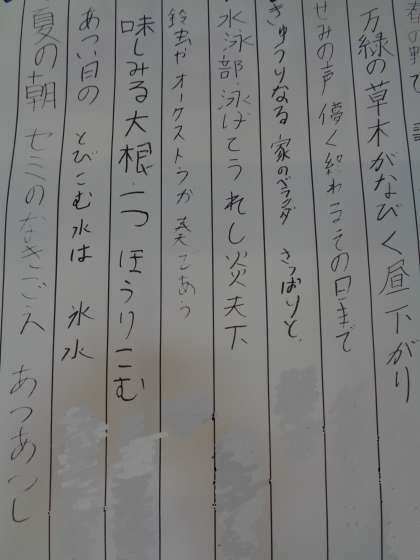 万緑の草木がなびく昼下がり
せみの声 儚く終わるその日まで
きゅうりなる 家のベランダ さっぱりと
水泳部泳げてうれし炎天下
鈴虫がオーケストラが奏であう
味しみる大根一つほうりこむ
あつい日の とびこむ水は 氷水
夏の朝 セミのなきごえ あつあつし